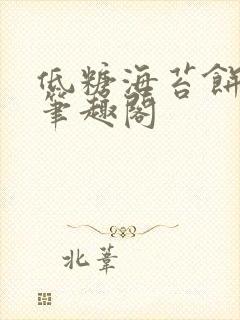 低糖海苔餅
筆趣閣
北葦